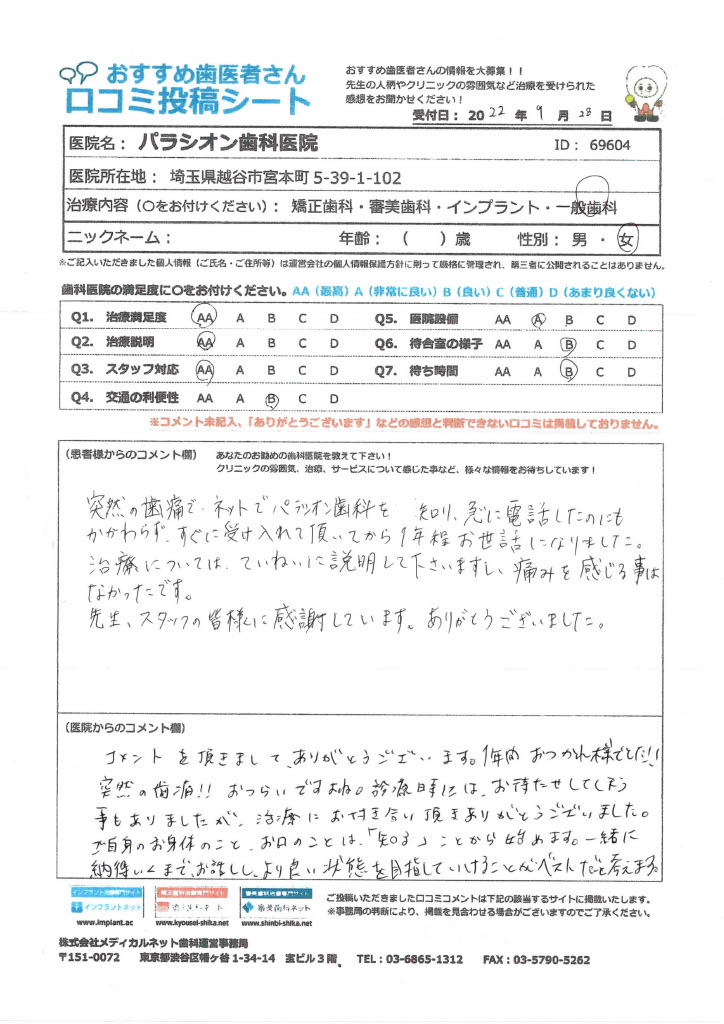 おすすめ歯医者さん
口コミ投稿シート
おすすめ歯医者さんの情報を大募集！！
先生の人柄やクリニックの雰囲気など治療を受けられた
感想をお聞かせください！
受付日： 2022 年 9 月 28 日
医院名： パラシオン歯科医院 ID： 69604
医院所在地： 埼玉県越谷市宮本町 5-39-1-102
治療内容（○をお付けください）： 矯正歯科・審美歯科・インプラント・一般歯科
ニックネーム： 年齢： （ ）歳 性別： 男 ・ 女
※ご記入いただきました個人情報（ご氏名・ご住所等）は運営会社の個人情報保護方針に則って厳格に管理され、第三者に公開されることはありません。
歯科医院の満足度に○をお付けください。AA（最高）A（非常に良い）B（良い）C（普通）D（あまり良くない）
Q1. 治療満足度 AA A B C D Q5. 医院設備 AA A B C D
Q2. 治療説明 AA A B C D Q6. 待合室の様子 AA A B C D
Q3. スタッフ対応 AA A B C D Q7. 待ち時間 AA A B C D
Q4. 交通の利便性 AA A B C D
※コメント未記入、「ありがとうございます」などの感想と判断できない口コミは掲載しておりません。
（患者様からのコメント欄） あなたのお勧めの歯科医院を教えて下さい！
クリニックの雰囲気、治療、サービスについて感じた事など、様々な情報をお待ちしています！
突然の歯痛で、ネットでパラシオン歯科を 知り、急に電話したのにも
かかわらず、すぐに受け入れて頂いてから1年程お世話になりました。
治療については、ていねいに説明して下さいますし、痛みを感じる事は
なかったです。
先生、スタッフの皆様に感謝しています。ありがとうございました。
（医院からのコメント欄）
コメントを頂きまして、ありがとうございます。1年間おつかれ様でした!!
突然の歯痛!! おつらいですよね。診療時には、お待たせしてしまう
事もありましたが、治療にお付き合い頂きありがとうございました。
ご自身のお身体のこと、お口のことは、「知る」ことから始めます。一緒に
納得いくまでお話しし、より良い状態を目指していけることがベストだと考えます。
インプラント治療専門サイト 矯正歯科治療専門サイト 審美歯科治療専門サイト
インプラントネット 矯正歯科ネット 審美歯科ネット
www.implant.ac www.kyousei-shika.net www.shinbi-shika.net
ご投稿いただきました口コミコメントは下記の該当するサイトに掲載いたします。
※事務局の判断により、掲載を見合わせる場合がございますのでご了承ください。
株式会社メディカルネット歯科運営事務局
〒151-0072 東京都渋谷区幡ヶ谷 1-34-14 宝ビル 3 階、 TEL：03-6865-1312 FAX：03-5790-5262